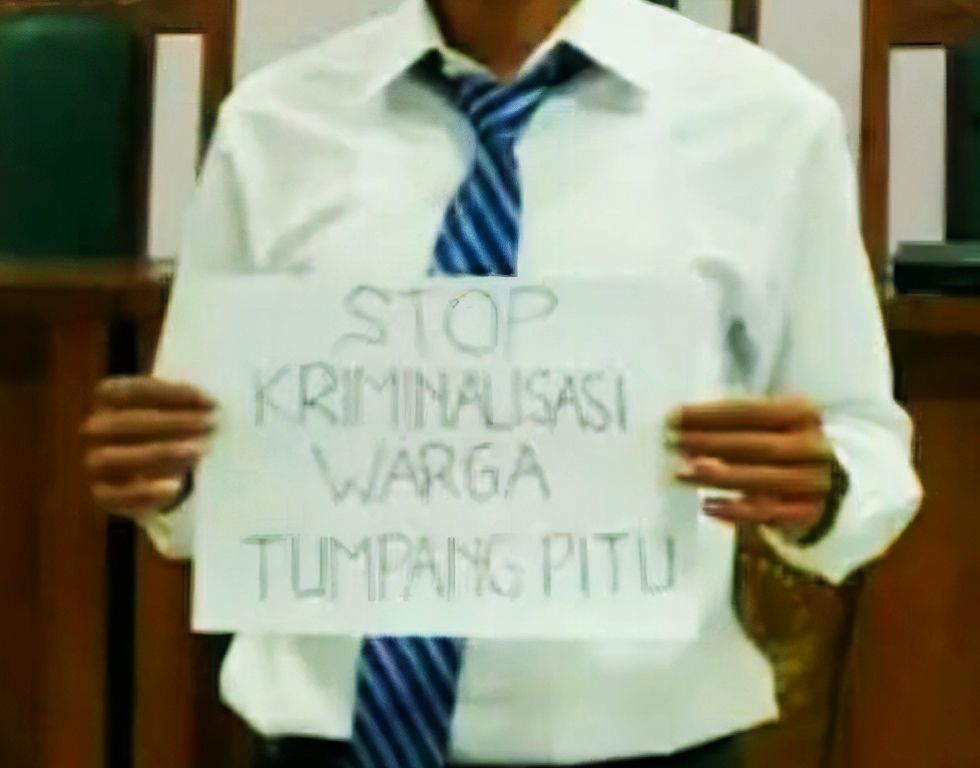 STOP
KRIMINALISASI
WARGA
TUMPANG PITU